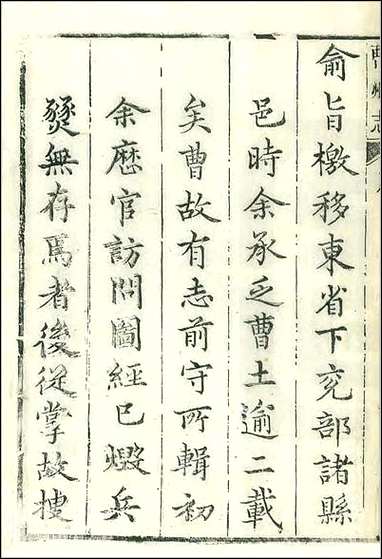 曹州志
俞旨檄移東省下兖部諸縣
邑時余承乏曹土逾二載
矣曹故有志前守所輯初
余歷官訪問圖經已燬兵
燹無存焉者後從掌故搜